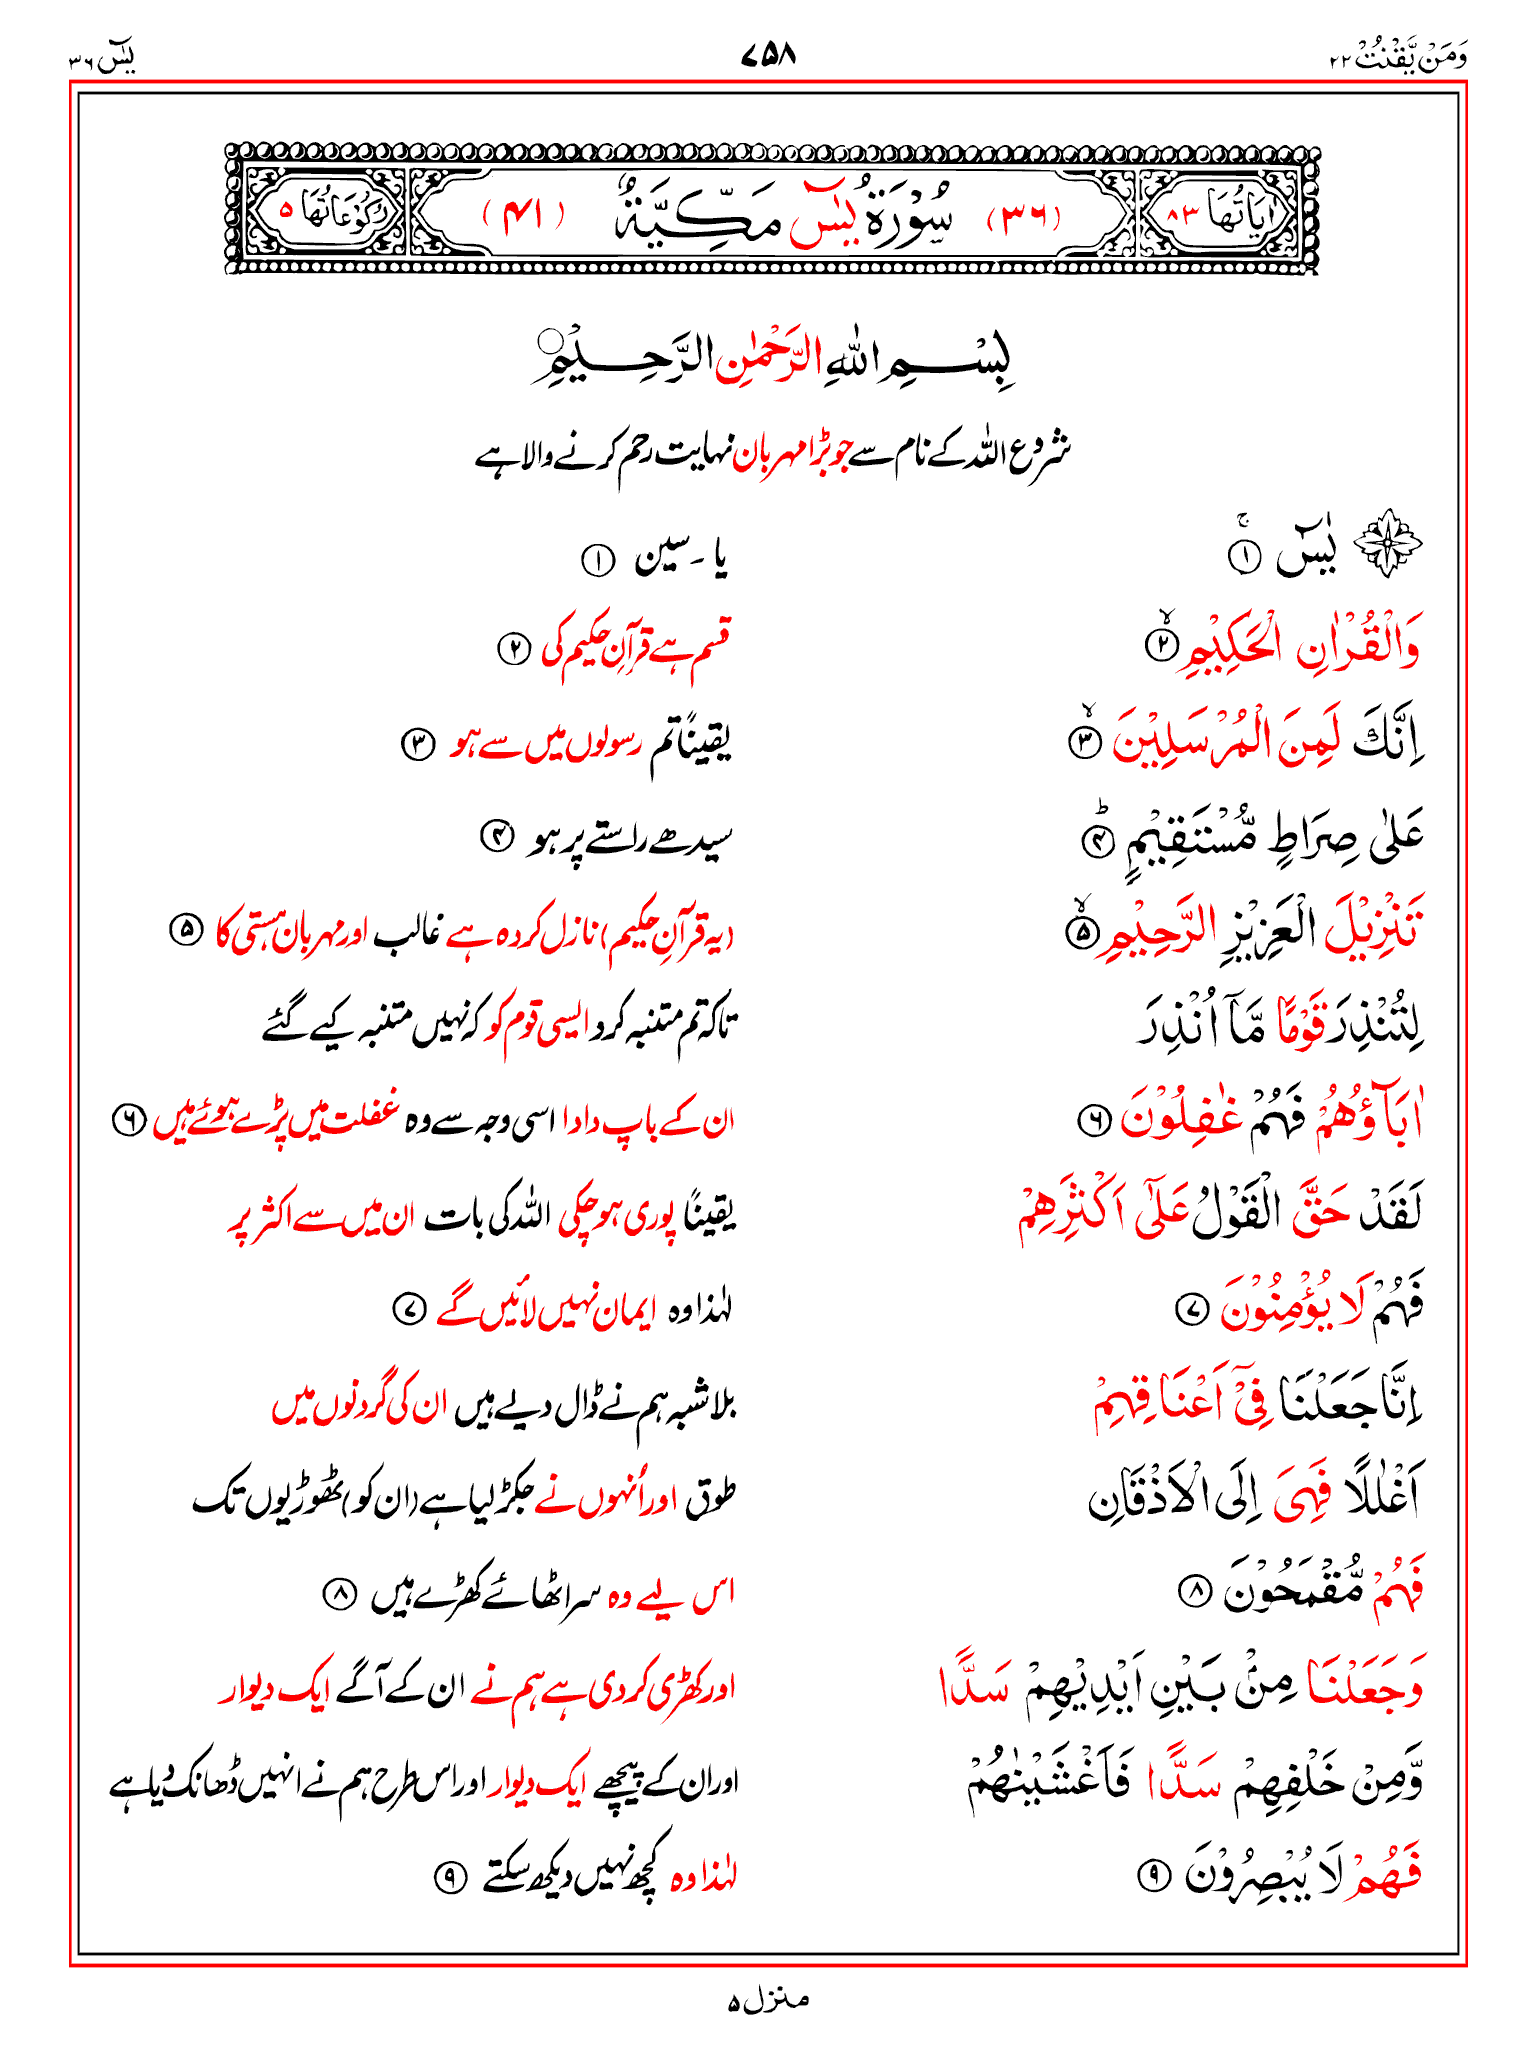 وَمَنْ يَّقْنُتْ ۲۲ ۷۵۸ يٰسٓ ۳۶
اٰيَاتُهَا ۸۳ (۳۶) سُوْرَةُ يٰسٓ مَكِّيَّةٌ (۴۱) رُكُوْعَاتُهَا ۵
بِسْمِ اللّٰهِ الرَّحْمٰنِ الرَّحِيْمِ
شروع اللہ کے نام سے جو بڑا مہربان نہایت رحم کرنے والا ہے
يٰسٓ ۚ ﴿۱﴾ یا۔سین ﴿۱﴾
وَالْقُرْاٰنِ الْحَكِيْمِ ۙ ﴿۲﴾ قسم ہے قرآنِ حکیم کی ﴿۲﴾
اِنَّكَ لَمِنَ الْمُرْسَلِيْنَ ۙ ﴿۳﴾ یقیناً تم رسولوں میں سے ہو ﴿۳﴾
عَلٰى صِرَاطٍ مُّسْتَقِيْمٍ ؕ ﴿۴﴾ سیدھے راستے پر ہو ﴿۴﴾
تَنْزِيْلَ الْعَزِيْزِ الرَّحِيْمِ ۙ ﴿۵﴾ (یہ قرآنِ حکیم) نازل کردہ ہے غالب اور مہربان ہستی کا ﴿۵﴾
لِتُنْذِرَ قَوْمًا مَّآ اُنْذِرَ تاکہ تم متنبہ کرو ایسی قوم کو کہ نہیں متنبہ کیے گئے
اٰبَآؤُهُمْ فَهُمْ غٰفِلُوْنَ ﴿۶﴾ ان کے باپ دادا اسی وجہ سے وہ غفلت میں پڑے ہوئے ہیں ﴿۶﴾
لَقَدْ حَقَّ الْقَوْلُ عَلٰٓى اَكْثَرِهِمْ یقیناً پوری ہو چکی اللہ کی بات ان میں سے اکثر پر
فَهُمْ لَا يُؤْمِنُوْنَ ﴿۷﴾ لہٰذا وہ ایمان نہیں لائیں گے ﴿۷﴾
اِنَّا جَعَلْنَا فِيْٓ اَعْنَاقِهِمْ بلاشبہ ہم نے ڈال دیے ہیں ان کی گردنوں میں
اَغْلٰلًا فَهِىَ اِلَى الْاَذْقَانِ طوق اور اُنہوں نے جکڑ لیا ہے (ان کو) ٹھوڑیوں تک
فَهُمْ مُّقْمَحُوْنَ ﴿۸﴾ اس لیے وہ سر اٹھائے کھڑے ہیں ﴿۸﴾
وَجَعَلْنَا مِنْۢ بَيْنِ اَيْدِيْهِمْ سَدًّا اور کھڑی کر دی ہے ہم نے ان کے آگے ایک دیوار
وَّمِنْ خَلْفِهِمْ سَدًّا فَاَغْشَيْنٰهُمْ اور ان کے پیچھے ایک دیوار اور اس طرح ہم نے انہیں ڈھانک دیا ہے
فَهُمْ لَا يُبْصِرُوْنَ ﴿۹﴾ لہٰذا وہ کچھ نہیں دیکھ سکتے ﴿۹﴾
منزل ۵